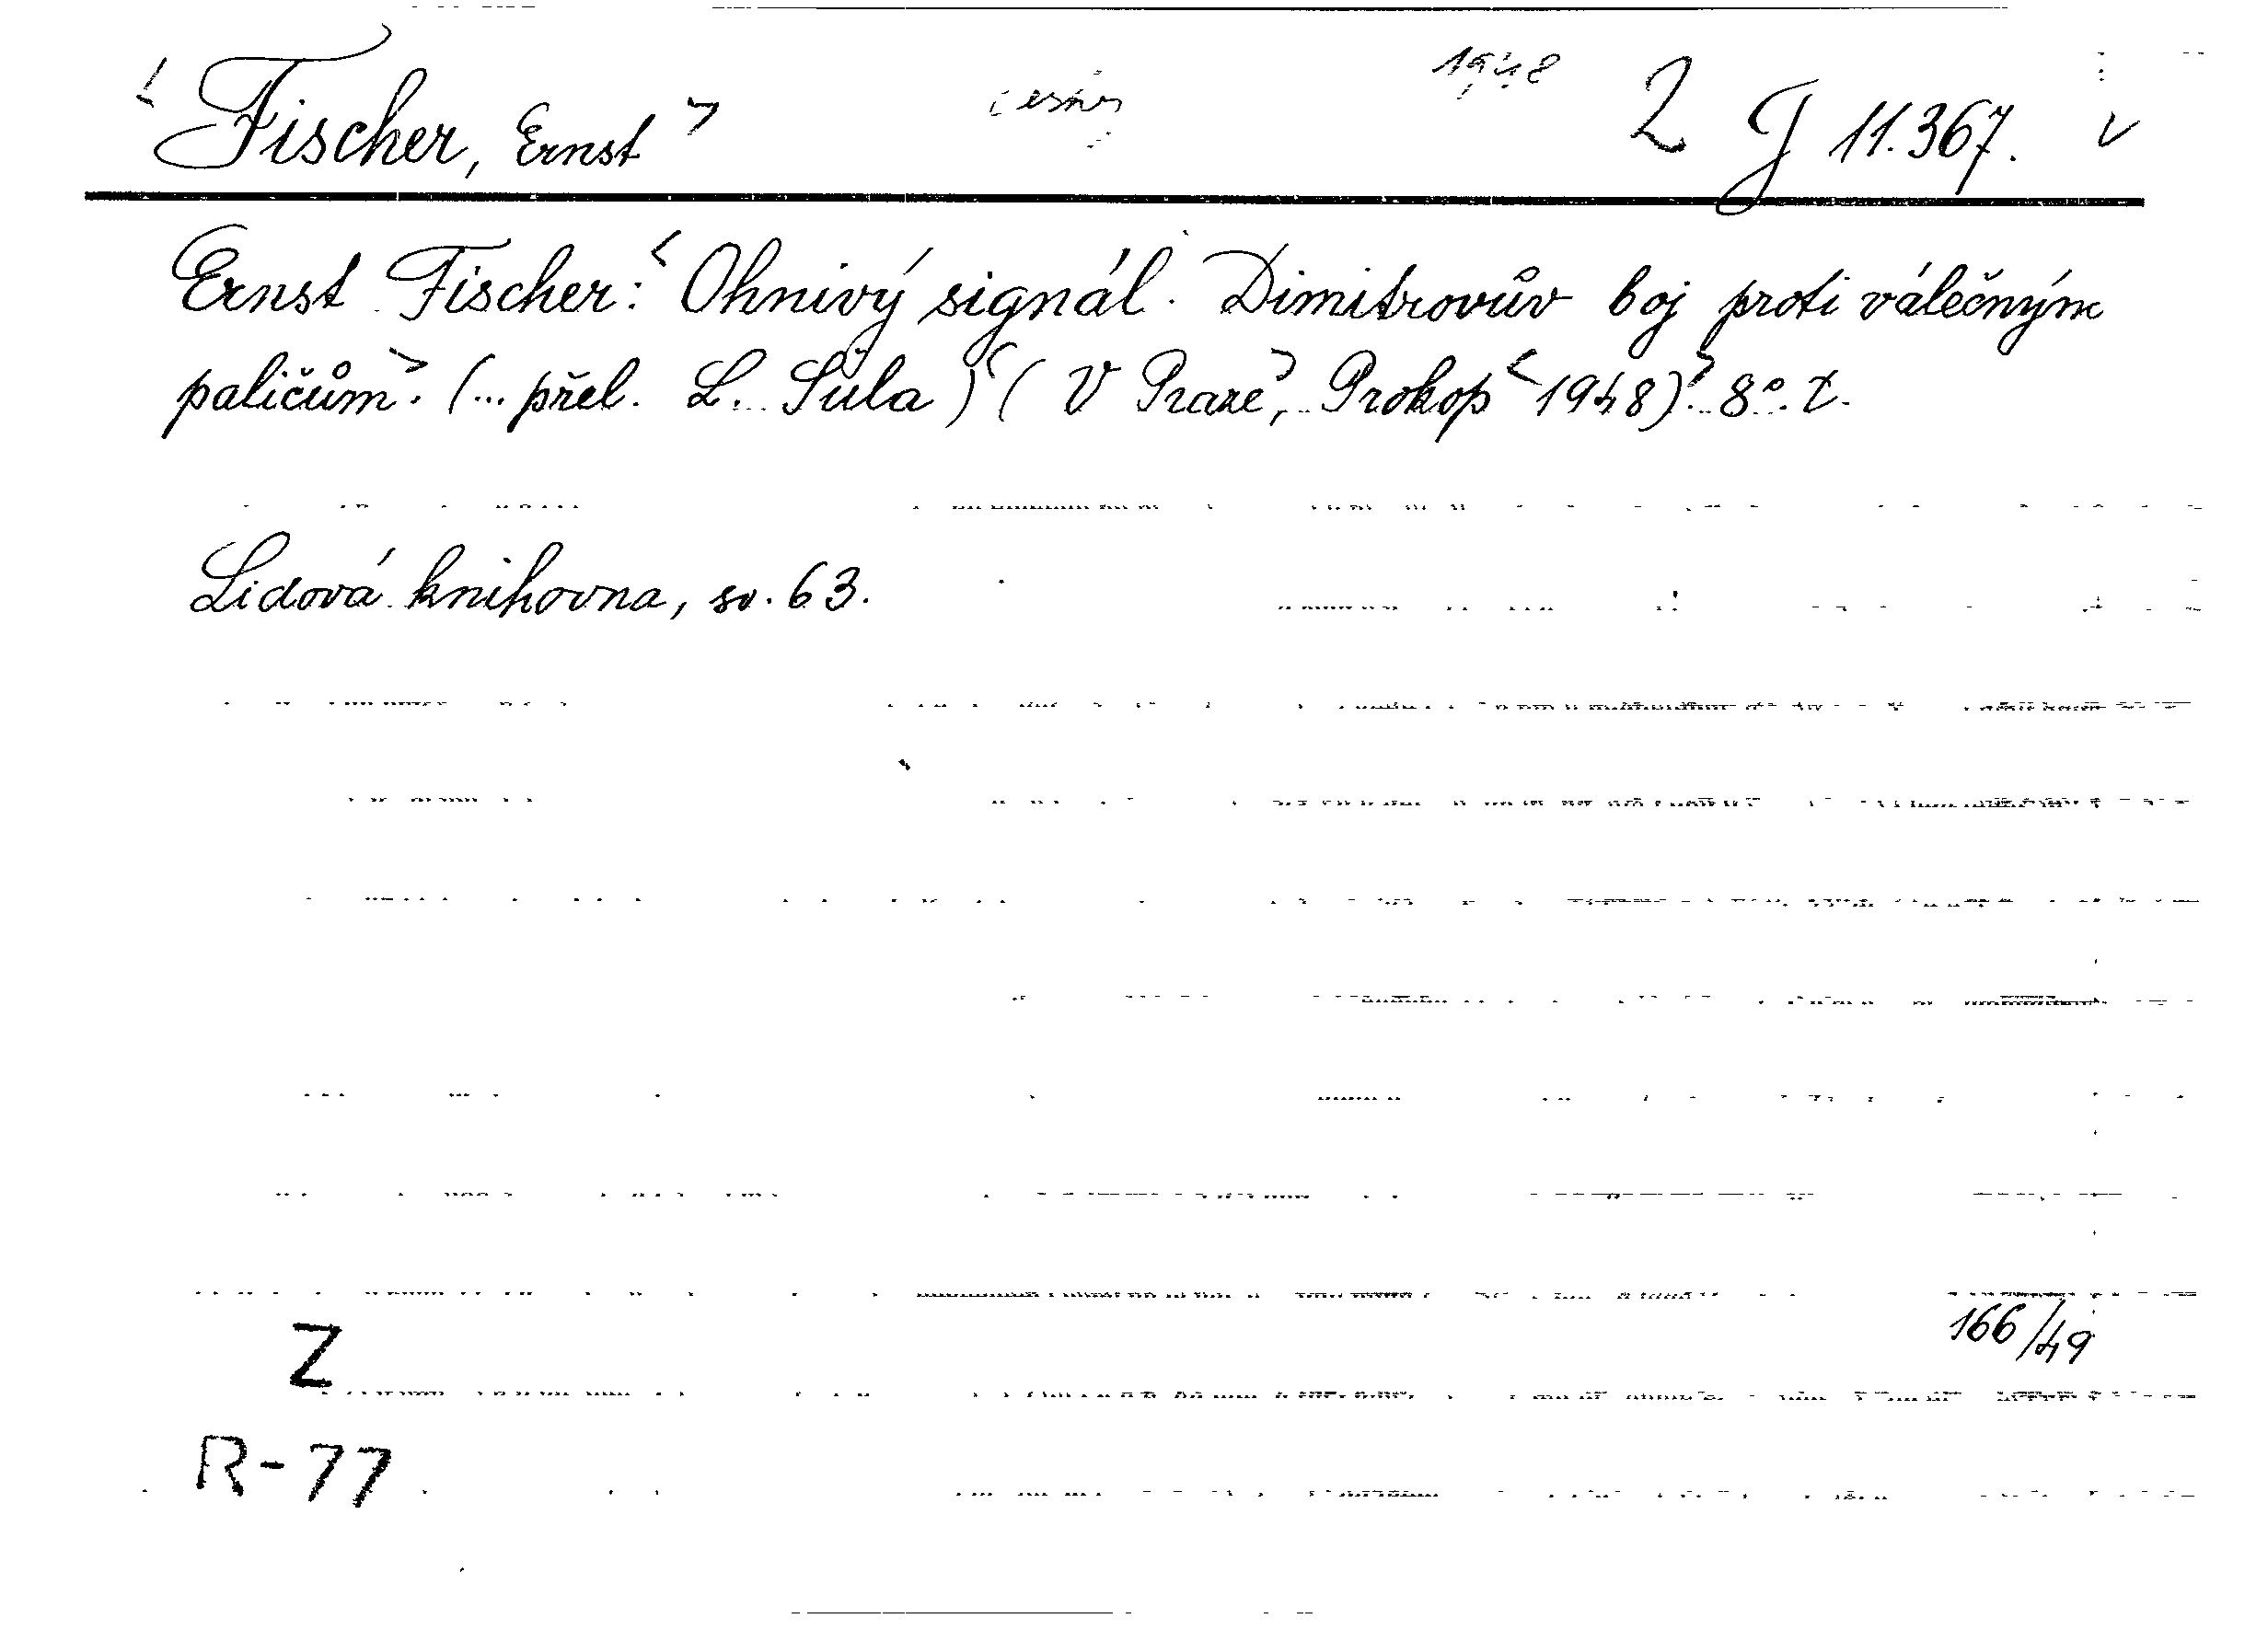 <Fischer, Ernst> česky 1948 2 J 11.367. v
Ernst Fischer: <Ohnivý signál. Dimitrovův boj proti válečným
paličům>. (... přel. L. Šůla) <(V Praze>, Prokop <1948)>. 8°.
Lidová knihovna, sv. 63.
166/49
Z
R-77